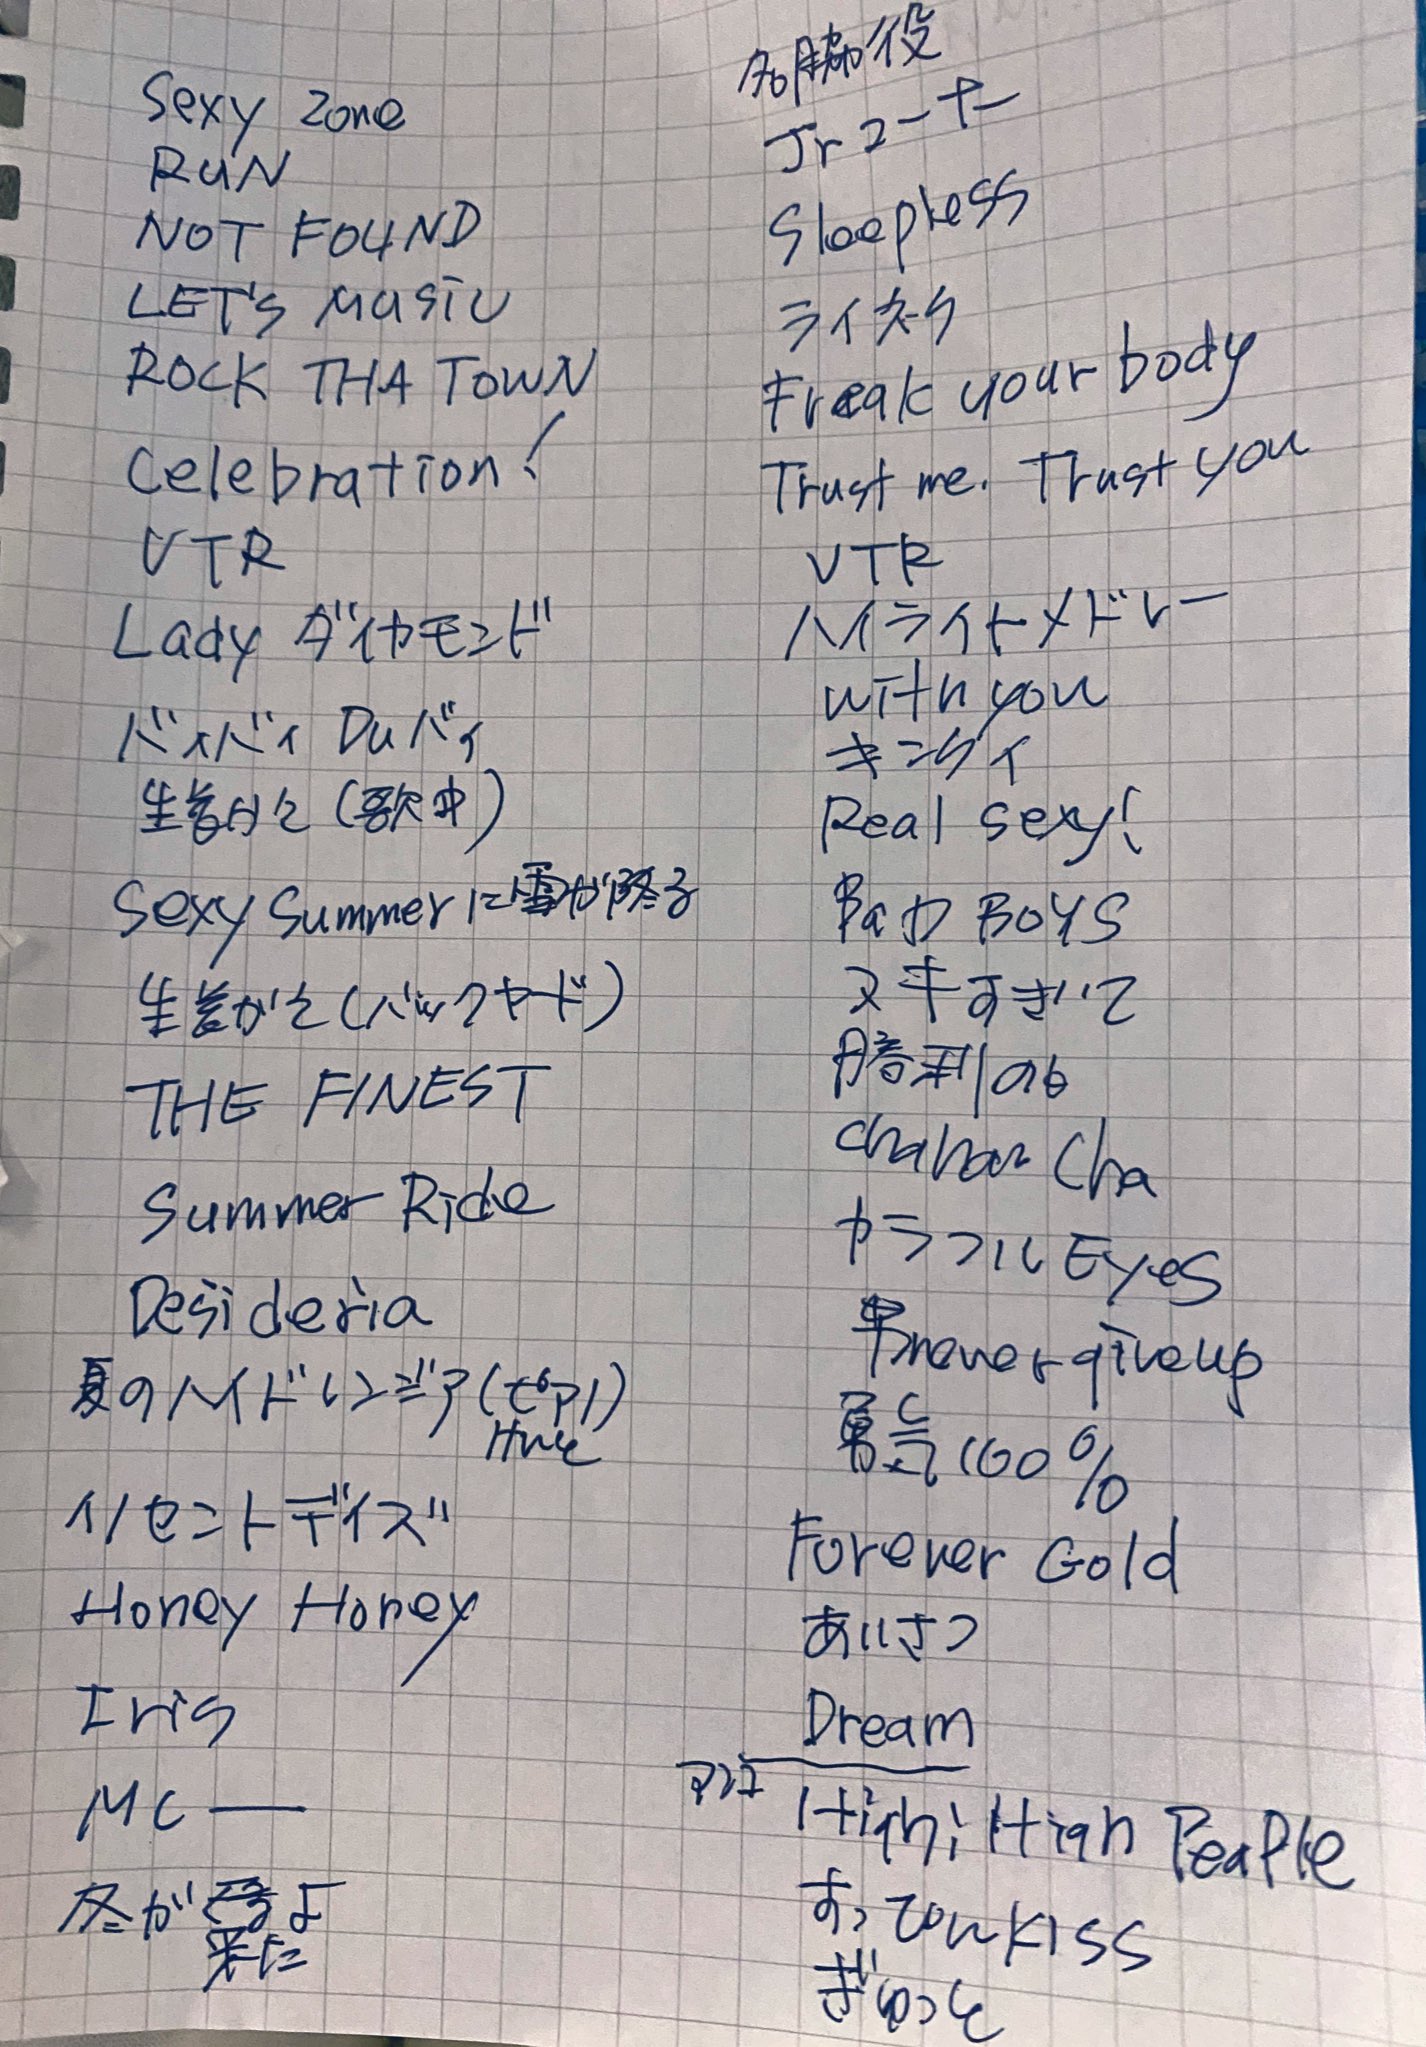 Sexy Zone
RUN
NOT FOUND
LET's MUSIC
ROCK THA TOWN
Celebration!
VTR
Lady ダイヤモンド
バィバィ Duバィ
生着がえ(歌中)
Sexy Summerに雪が降る
生着がえ(バックヤード)
THE FINEST
Summer Ride
Desideria
夏のハイドレンジア(ピアノ)
イノセントデイズ
Honey Honey
Iris
MC
冬が よ
来た
名脇役
Jrコーナー
Sleepless
ライオネク
Freak your body
Trust me. Trust you
VTR
ハイライトメドレー
with you
キングィ
Real sexy!
BAD BOYS
スキすぎて
勝利 lab
Cha Cha
カラフル Eyes
男 never giveup
勇気100%
Forever Gold
あいさつ
Dream
アンコ High! High People
ずっと on KISS
ぎゅっと